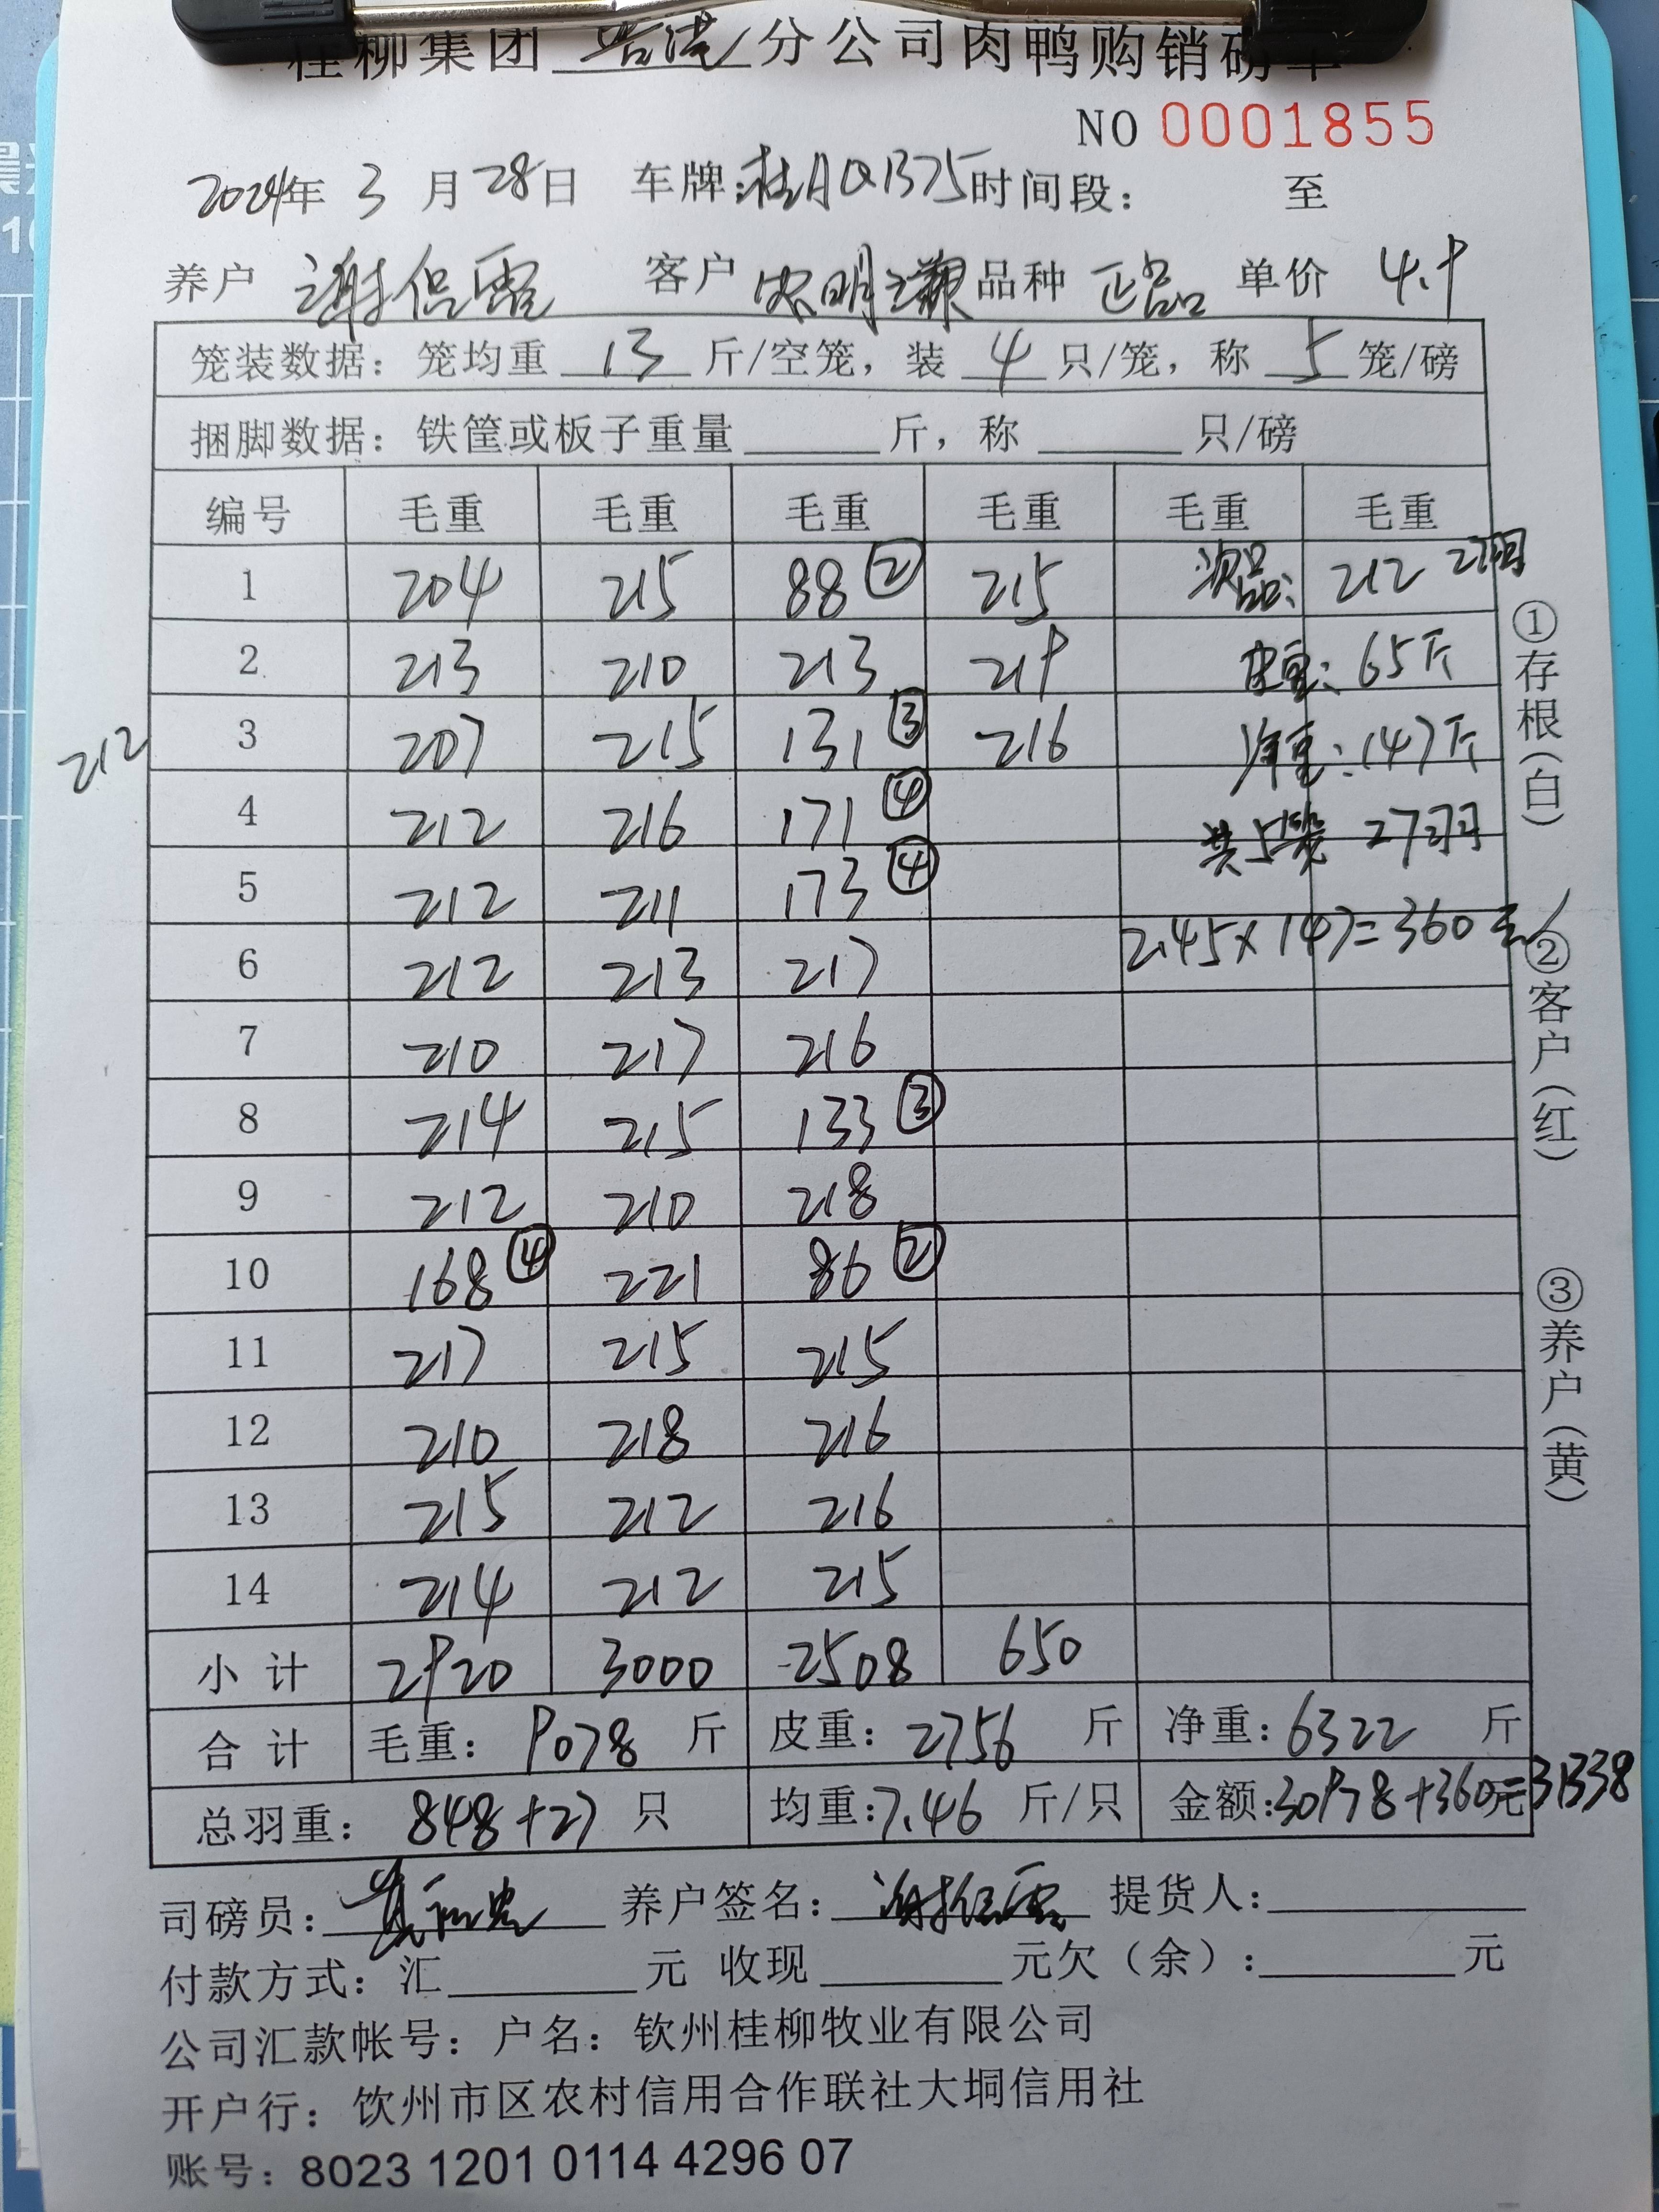 桂柳集团 分公司肉鸭购销磅单
NO 0001855
2024年 3 月 28日 车牌:桂AQB75时间段: 至
养户 谢保霞 客户 明谦 品种 正品 单价 4.9
笼装数据: 笼均重 13 斤/空笼, 装 4 只/笼, 称 5 笼/磅
捆脚数据: 铁筐或板子重量 斤, 称 只/磅
编号 毛重 毛重 毛重 毛重 毛重 毛重
1 204 215 88② 215 次品: 212 27羽
2 213 210 213 219 皮重: 65斤
212 3 207 215 131③ 216 净重: 147斤
4 212 216 171④ 共5笼 27羽
5 212 211 173④
6 212 213 217 2.45×147=360元
7 210 217 216
8 214 215 133③
9 212 210 218
10 168④ 221 86②
11 217 215 215
12 210 218 216
13 215 212 216
14 214 212 215
小计 2920 3000 2508 650
合计 毛重: 9078 斤 皮重: 2756 斤 净重: 6322 斤
总羽重: 848+27 只 均重:7.46 斤/只 金额:30978+360元=31338
司磅员: 养户签名: 谢保霞 提货人:
付款方式: 汇 元 收现 元欠(余): 元
公司汇款帐号: 户名: 钦州桂柳牧业有限公司
开户行: 饮州市区农村信用合作联社大垌信用社
账号: 8023 1201 0114 4296 07
①存根(白)
②客户(红)
③养户(黄)